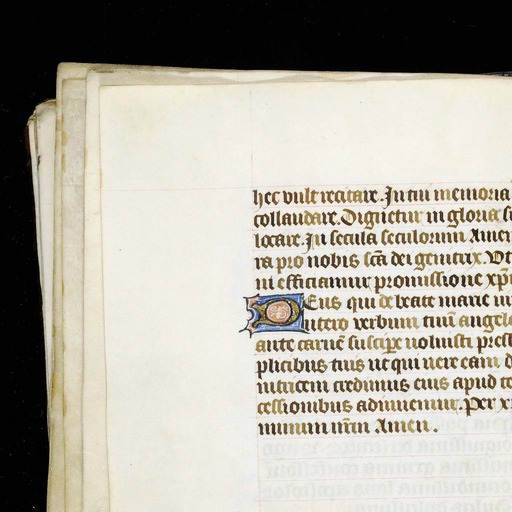 hec vult recitare. In tui memoria
collaudare. Dignetur in gloria
locare. In secula seculorum Amen
ra pro nobis scā dei genitrix. Vt
ni efficiamur promissione xp̄i
Deus qui de beate marie
utero verbum tuū angelo
ante carnē suscipe voluisti prest
plicibus tuis ut qui vere eam d
nitricem credimus eius apud te
cessionibus adiuuemur. Per x
minum nr̄m Amen.